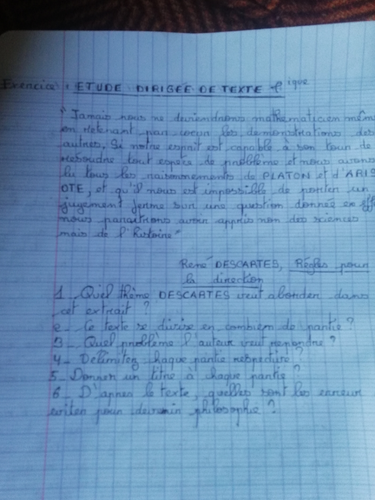 Exercice : ETUDE DIRIGÉE DE TEXTE φique
"Jamais nous ne deviendrons mathématicien même
en retenant par cœur les démonstrations des
autres. Si notre esprit est capable à son tour de
résoudre tout espèce de problème et nous aurons
lu tous les raisonnements de PLATON et d'ARIS
OTE, et qu'il nous est impossible de porter un
jugement ferme sur une question donnée en eff
nous paraîtrons avoir appris non des sciences
mais de l'histoire"
René DESCARTES, Règles pour
la direction
1_ Quel thème DESCARTES veut aborder dans
cet extrait ?
2_ Ce texte se divise en combien de partie ?
3_ Quel problème l'auteur veut repondre ?
4_ Délimitez chaque partie respective ?
5_ Donner un titre à chaque partie ?
6_ D'après le texte, quelles sont les erreur
éviter pour devenir philosophe ?